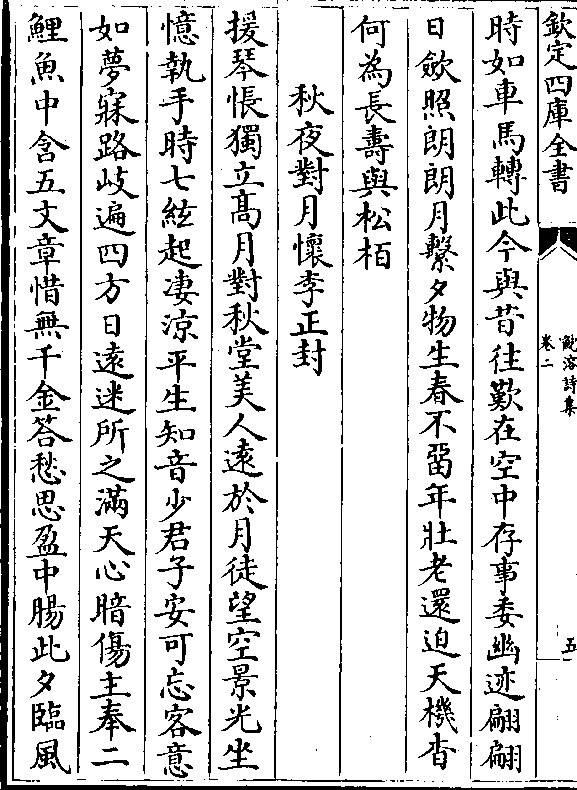 欽定四庫全書
歐溶詩集
卷二
五
時如車馬轉此今與昔往歎在空中存事委幽迹翩翩
日歛照朗朗月繫夕物生春不畱年壯老還迫天機杳
何為長壽與松栢
秋夜對月懷李正封
援琴悵獨立髙月對秋堂美人遠於月徒望空景光坐
憶執手時七絃起凄涼平生知音少君子安可忘客意
如夢寐路岐遍四方日遠迷所之滿天心暗傷主奉二
鯉魚中含五文章惜無千金答愁思盈中腸此夕臨風